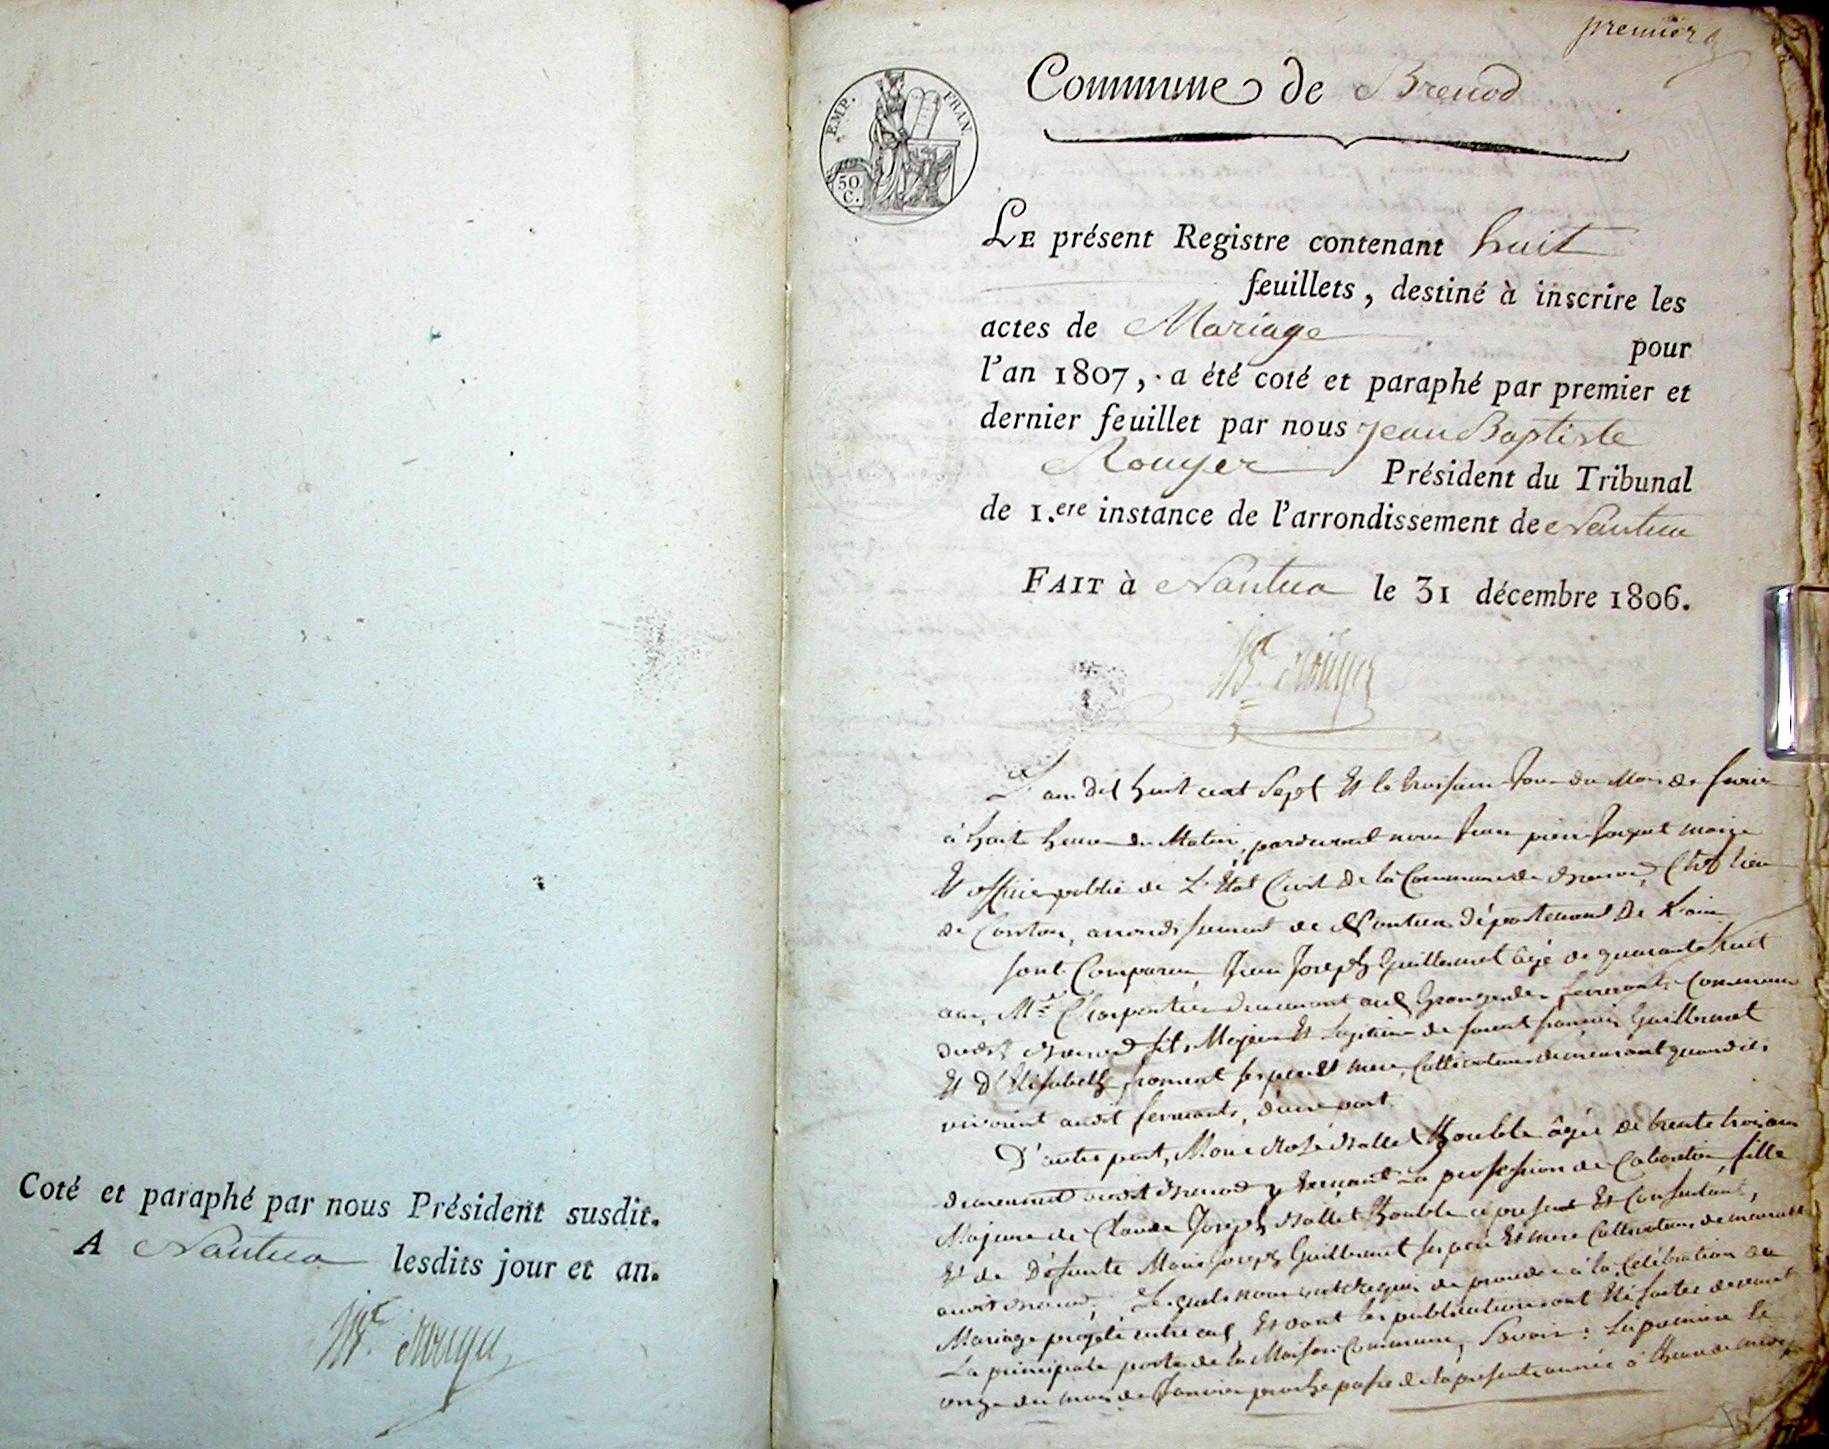 Coté et paraphé par nous Président susdit.
A Nantua lesdits jour et an.
Bte Rouyer
premier
EMP. FRAN.
50 C.
Commune de Brenod
LE présent Registre contenant huit
feuillets, destiné à inscrire les
actes de Mariage pour
l'an 1807, a été coté et paraphé par premier et
dernier feuillet par nous Jean Baptiste
Rouyer Président du Tribunal
de 1.ere instance de l'arrondissement de Nantua
FAIT à Nantua le 31 décembre 1806.
Bte Rouyer
L'an dix huit cent sept Et le troisieme Jour du Mois de fevrier
à huit heures du Matin, pardevant nous Jean pierre maire
Et officier public de L'Etat Civil de la Commune de Brenod, Chef lieu
de Canton, arrondissement de Nantua Département De L'ain
sont Comparus, Jean Joseph Guillermet âgé de quarante huit
ans, Me Charpentier demeurant aux Granges des Commune
dudit Brenod fils Majeur Et Legitime de françois Guillermet
Et D'Elisabeth froment ses pere Et mere, Cultivateurs demeurant quand ils
vivoient audit, d'une part.
D'autre part, Marie Rose Ballet âgée de trente trois ans
demeurant audit Brenod y Exerçant La profession de fille
Majeure de Claude Joseph Ballet ci present Et Consentant,
Et de Défunte Marie Joseph Guillermet ses pere Et mere Cultivateurs demeurant
audit Brenod; Lesquels nous ont requis de proceder à la Célébration du
Mariage projetté entre eux, Et dont les publications ont été faites devant
La principale porte de la Maison Commune, Savoir: La premiere le
onze du mois de Janvier proche passé de la presente année à l'heure de midy